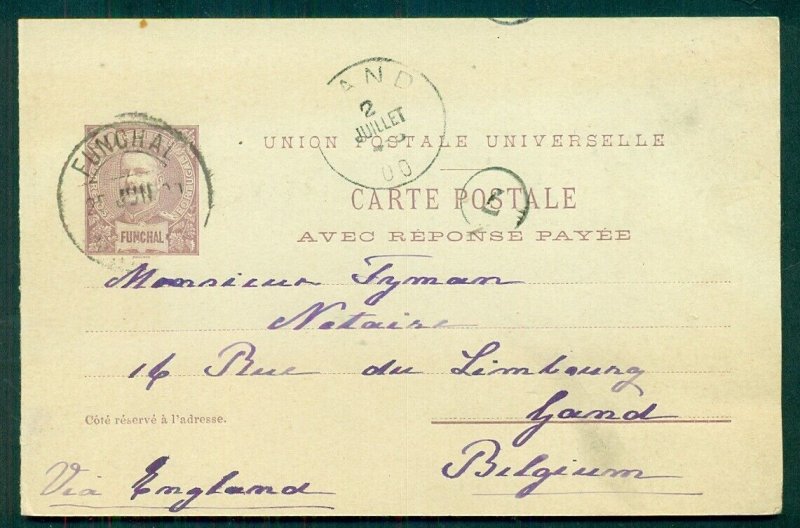 GAND
2
JUILLET
00
UNION POSTALE UNIVERSELLE
CARTE POSTALE
AVEC RÉPONSE PAYÉE
FUNCHAL
JUN
FUNCHAL
Monsieur Tyman
Notaire
16 Rue du Limbourg
Gand
Côté réservé à l'adresse.
Belgium
Via England